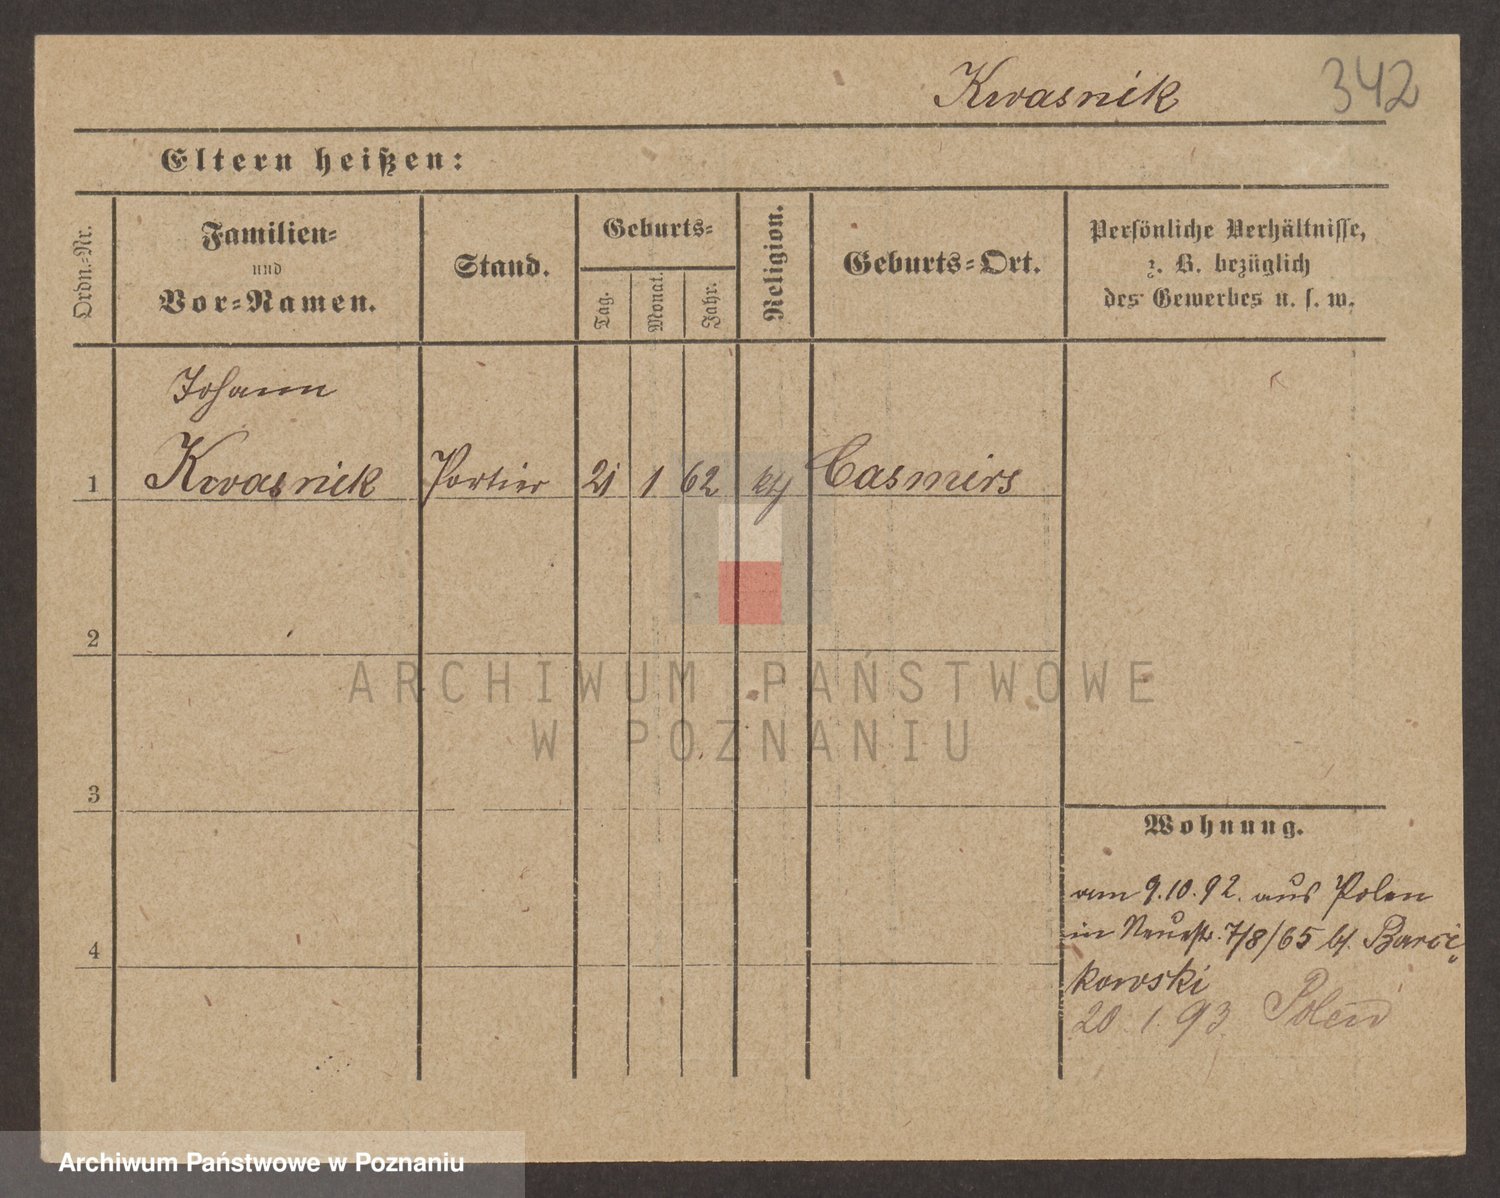 Kwasnik 342
Eltern heißen:
Ordn.-Nr.
Familien-
und
Vor-Namen.
Stand.
Geburts-
Tag.
Monat.
Jahr.
Religion.
Geburts-Ort.
Persönliche Verhältnisse,
z. B. bezüglich
des Gewerbes u. s. w.
Johann
1 Kwasnik Portier 21 1 62 kth Casmirs
2
ARCHIWUM PAŃSTWOWE
W POZNANIU
3
Wohnung.
am 9.10.92. aus Polen
in Neuestr. 7/8/65 bf. Barci-
4
kowski
20 1. 93 Polen
Archiwum Państwowe w Poznaniu